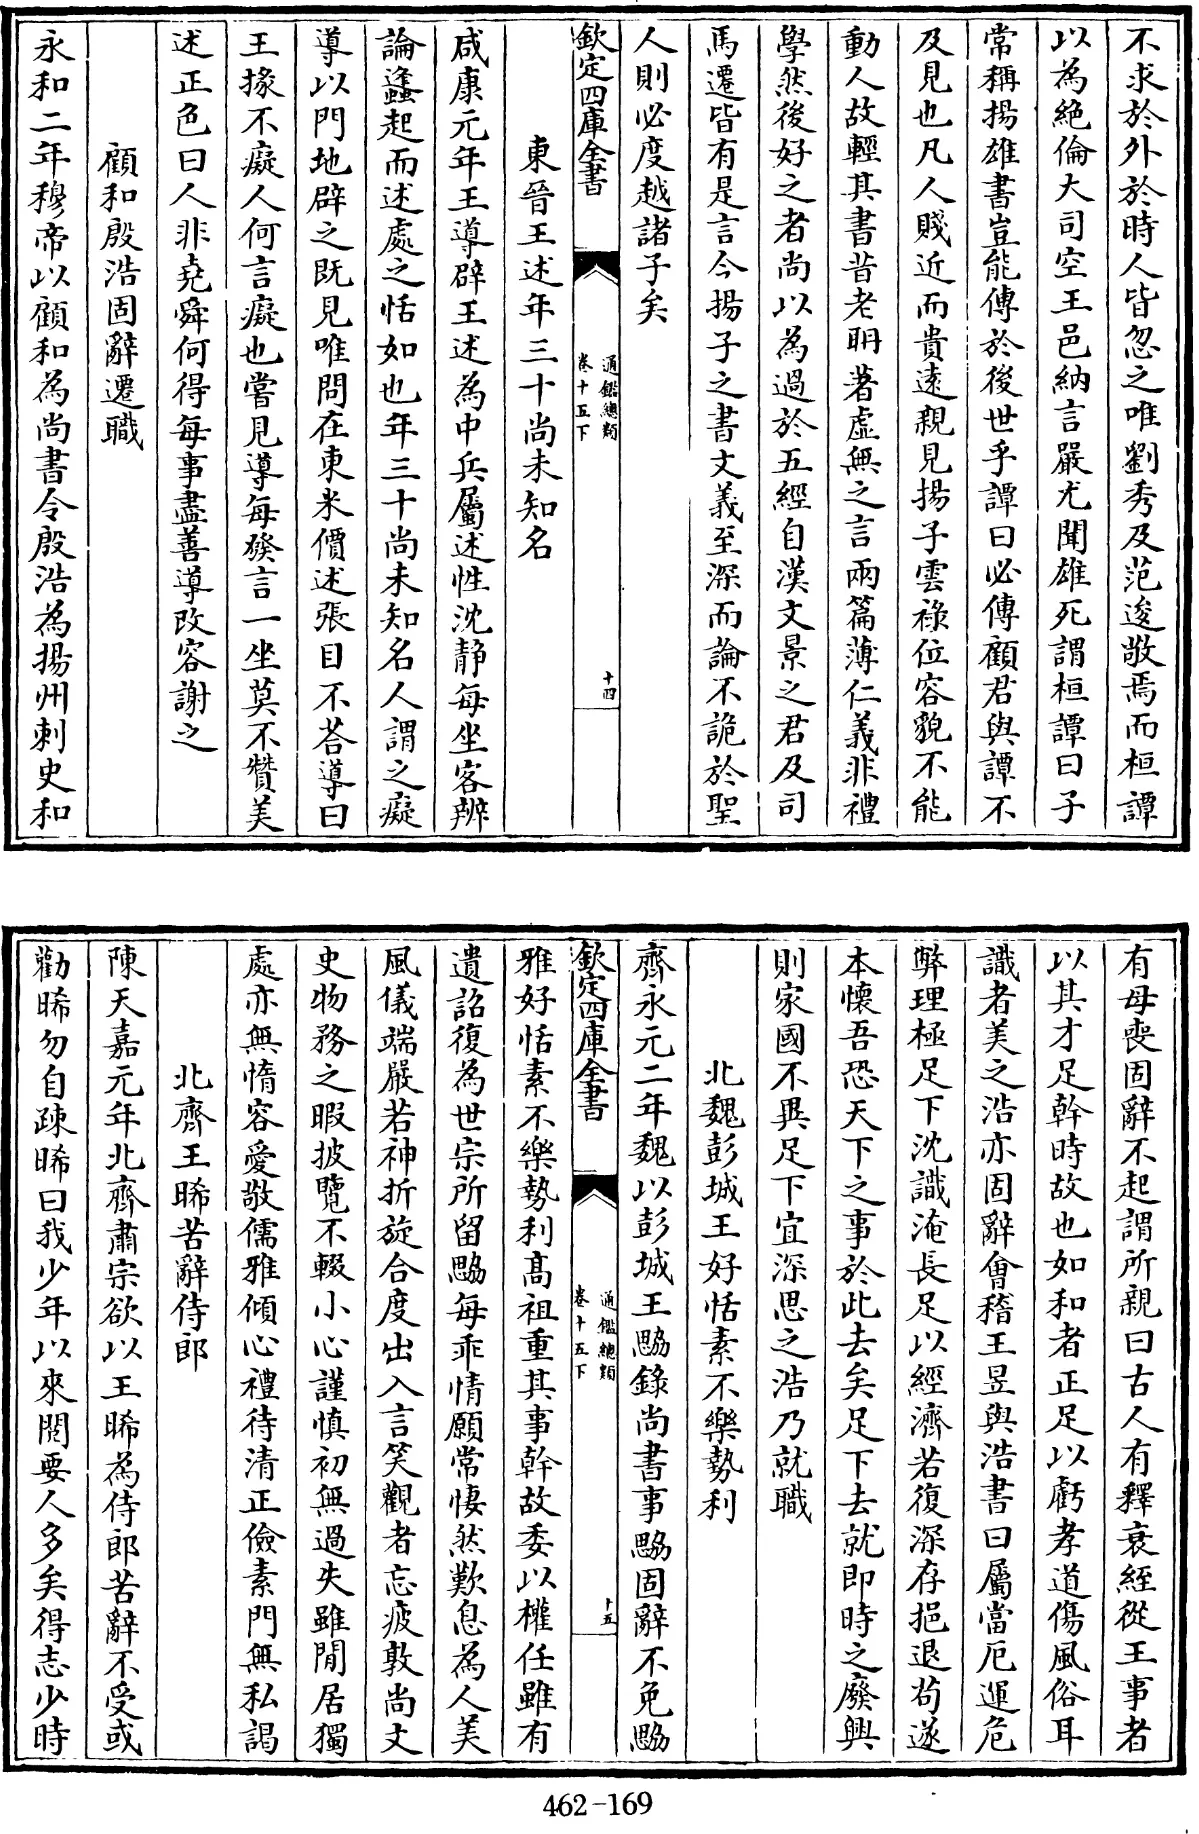 不求於外於時人皆忽之唯劉秀及范逡敬焉而桓譚
以為絶倫大司空王邑納言嚴尤聞雄死謂桓譚曰子
常稱揚雄書豈能傳於後世乎譚曰必傳顧君與譚不
及見也凡人賤近而貴遠親見揚子雲禄位容貌不能
動人故輕其書昔老耼著虛無之言兩篇薄仁義非禮
學然後好之者尚以為過於五經自漢文景之君及司
馬遷皆有是言今揚子之書文義至深而論不詭於聖
人則必度越諸子矣
欽定四庫全書
通鑑總類
卷十五下
十四
東晉王述年三十尚未知名
咸康元年王導辟王述為中兵屬述性沈静每坐客辨
論蠭起而述處之恬如也年三十尚未知名人謂之癡
導以門地辟之既見唯問在東米價述張目不荅導曰
王掾不癡人何言癡也嘗見導每發言一坐莫不贊美
述正色曰人非堯舜何得每事盡善導改容謝之
顧和殷浩固辭遷職
永和二年穆帝以顧和為尚書令殷浩為揚州刺史和
有母喪固辭不起謂所親曰古人有釋衰絰從王事者
以其才足幹時故也如和者正足以虧孝道傷風俗耳
識者美之浩亦固辭會稽王昱與浩書曰屬當厄運危
弊理極足下沈識淹長足以經濟若復深存挹退苟遂
本懷吾恐天下之事於此去矣足下去就即時之廢興
則家國不異足下宜深思之浩乃就職
北魏彭城王好恬素不樂勢利
齊永元二年魏以彭城王勰錄尚書事勰固辭不免勰
欽定四庫全書
通鑑總類
卷十五下
十五
雅好恬素不樂勢利髙祖重其事幹故委以權任雖有
遺詔復為世宗所留勰每乖情願常悽然歎息為人美
風儀端嚴若神折旋合度出入言笑觀者忘疲敦尚文
史物務之暇披覽不輟小心謹慎初無過失雖閒居獨
處亦無惰容愛敬儒雅傾心禮待清正儉素門無私謁
北齊王晞苦辭侍郎
陳天嘉元年北齊肅宗欲以王晞為侍郎苦辭不受或
勸晞勿自疎晞曰我少年以來閱要人多矣得志少時
462-169